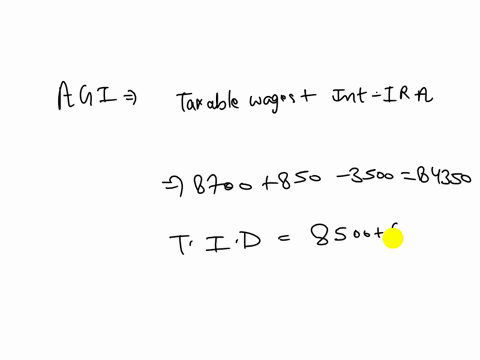 AGI ⇒ Taxable wages + Int - IRA
⇒ 8700 + 850 - 3500 = 84350
T. I. D = 8500 +